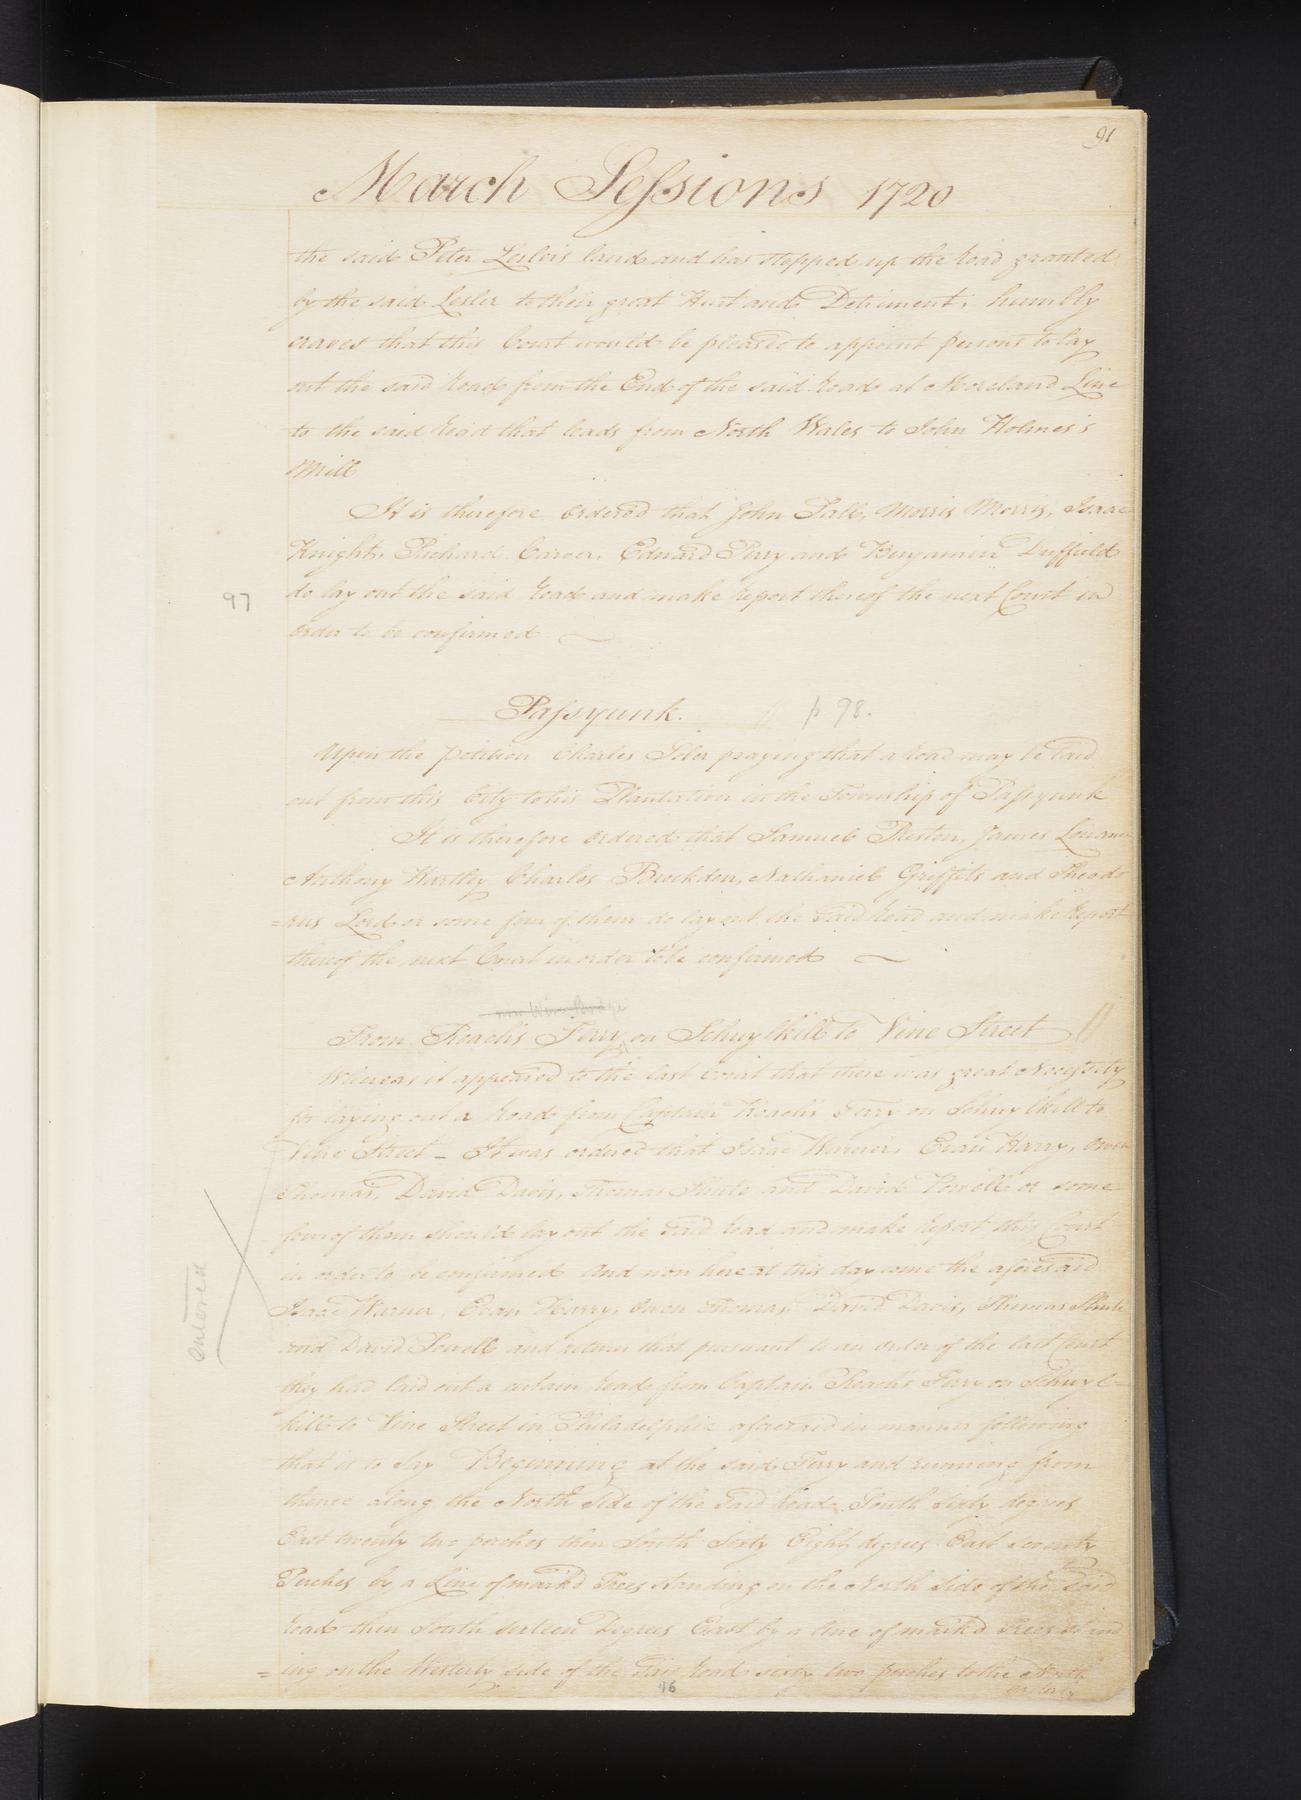 91
March Sessions 1720
the said Peter Lesler's land and has stopped up the Road granted
by the said Lesler to their great Hurt and Detriment, humbly
craves that this Court would be pleased to appoint persons to lay
out the said Road from the End of the said Road at Moreland Line
to the said Road that leads from North Wales to John Holmes's
Mill
It is therefore Ordered that John Morris Morris, Isaac
Knight, Richard Carver, Edward Perry and Benjamin Duffield
97
do lay out the said Road and make Report thereof the next Court in
order to be confirmed
Passyunk. // p 98.
Upon the petition Charles praying that a Road may be laid
out from this City to his Plantation in the Township of Passyunk
It is therefore ordered that Samuel Preston, James
Anthony Charles Brockden, Nathaniel Griffits and Theodo
=rus Lord or some four of them do lay out the said Road and make Report
thereof the next Court in order to be confirmed
now Wire Bridge
From Roach's Ferry on Schuylkill to Vine Street //
Whereas it appeared to the last Court that there was great Necessity
for laying out a Road from Captain Roach's Ferry on Schuylkill to
Vine Street - It was ordered that Isaac Warner, Evan Harry, Owen
Thomas, David Davis, Thomas Shute and David Powell or some
four of them should lay out the said Road and make Report this Court
in order to be confirmed And now here at this day come the aforesaid
entered
Isaac Warner, Evan Harry, Owen Thomas, David Davis, Thomas Shute
and David Powell and return that pursuant to an order of the last Court
they had laid out a certain Road from Captain Roach's Ferry on Schuyl=
kill to Vine Street in Philadelphia aforesaid in manner following
that is to Say Beginning at the said Ferry and running from
thence along the North Side of the said Road South Sixty degrees
East twenty two perches then South Sixty Eight degrees East seventy
Perches by a Line of mark'd Trees standing on the North Side of the said
Road then South sixteen Degrees East by a line of mark'd Trees stand
=ing on the Westerly side of the said Road sixty two perches to the North
46